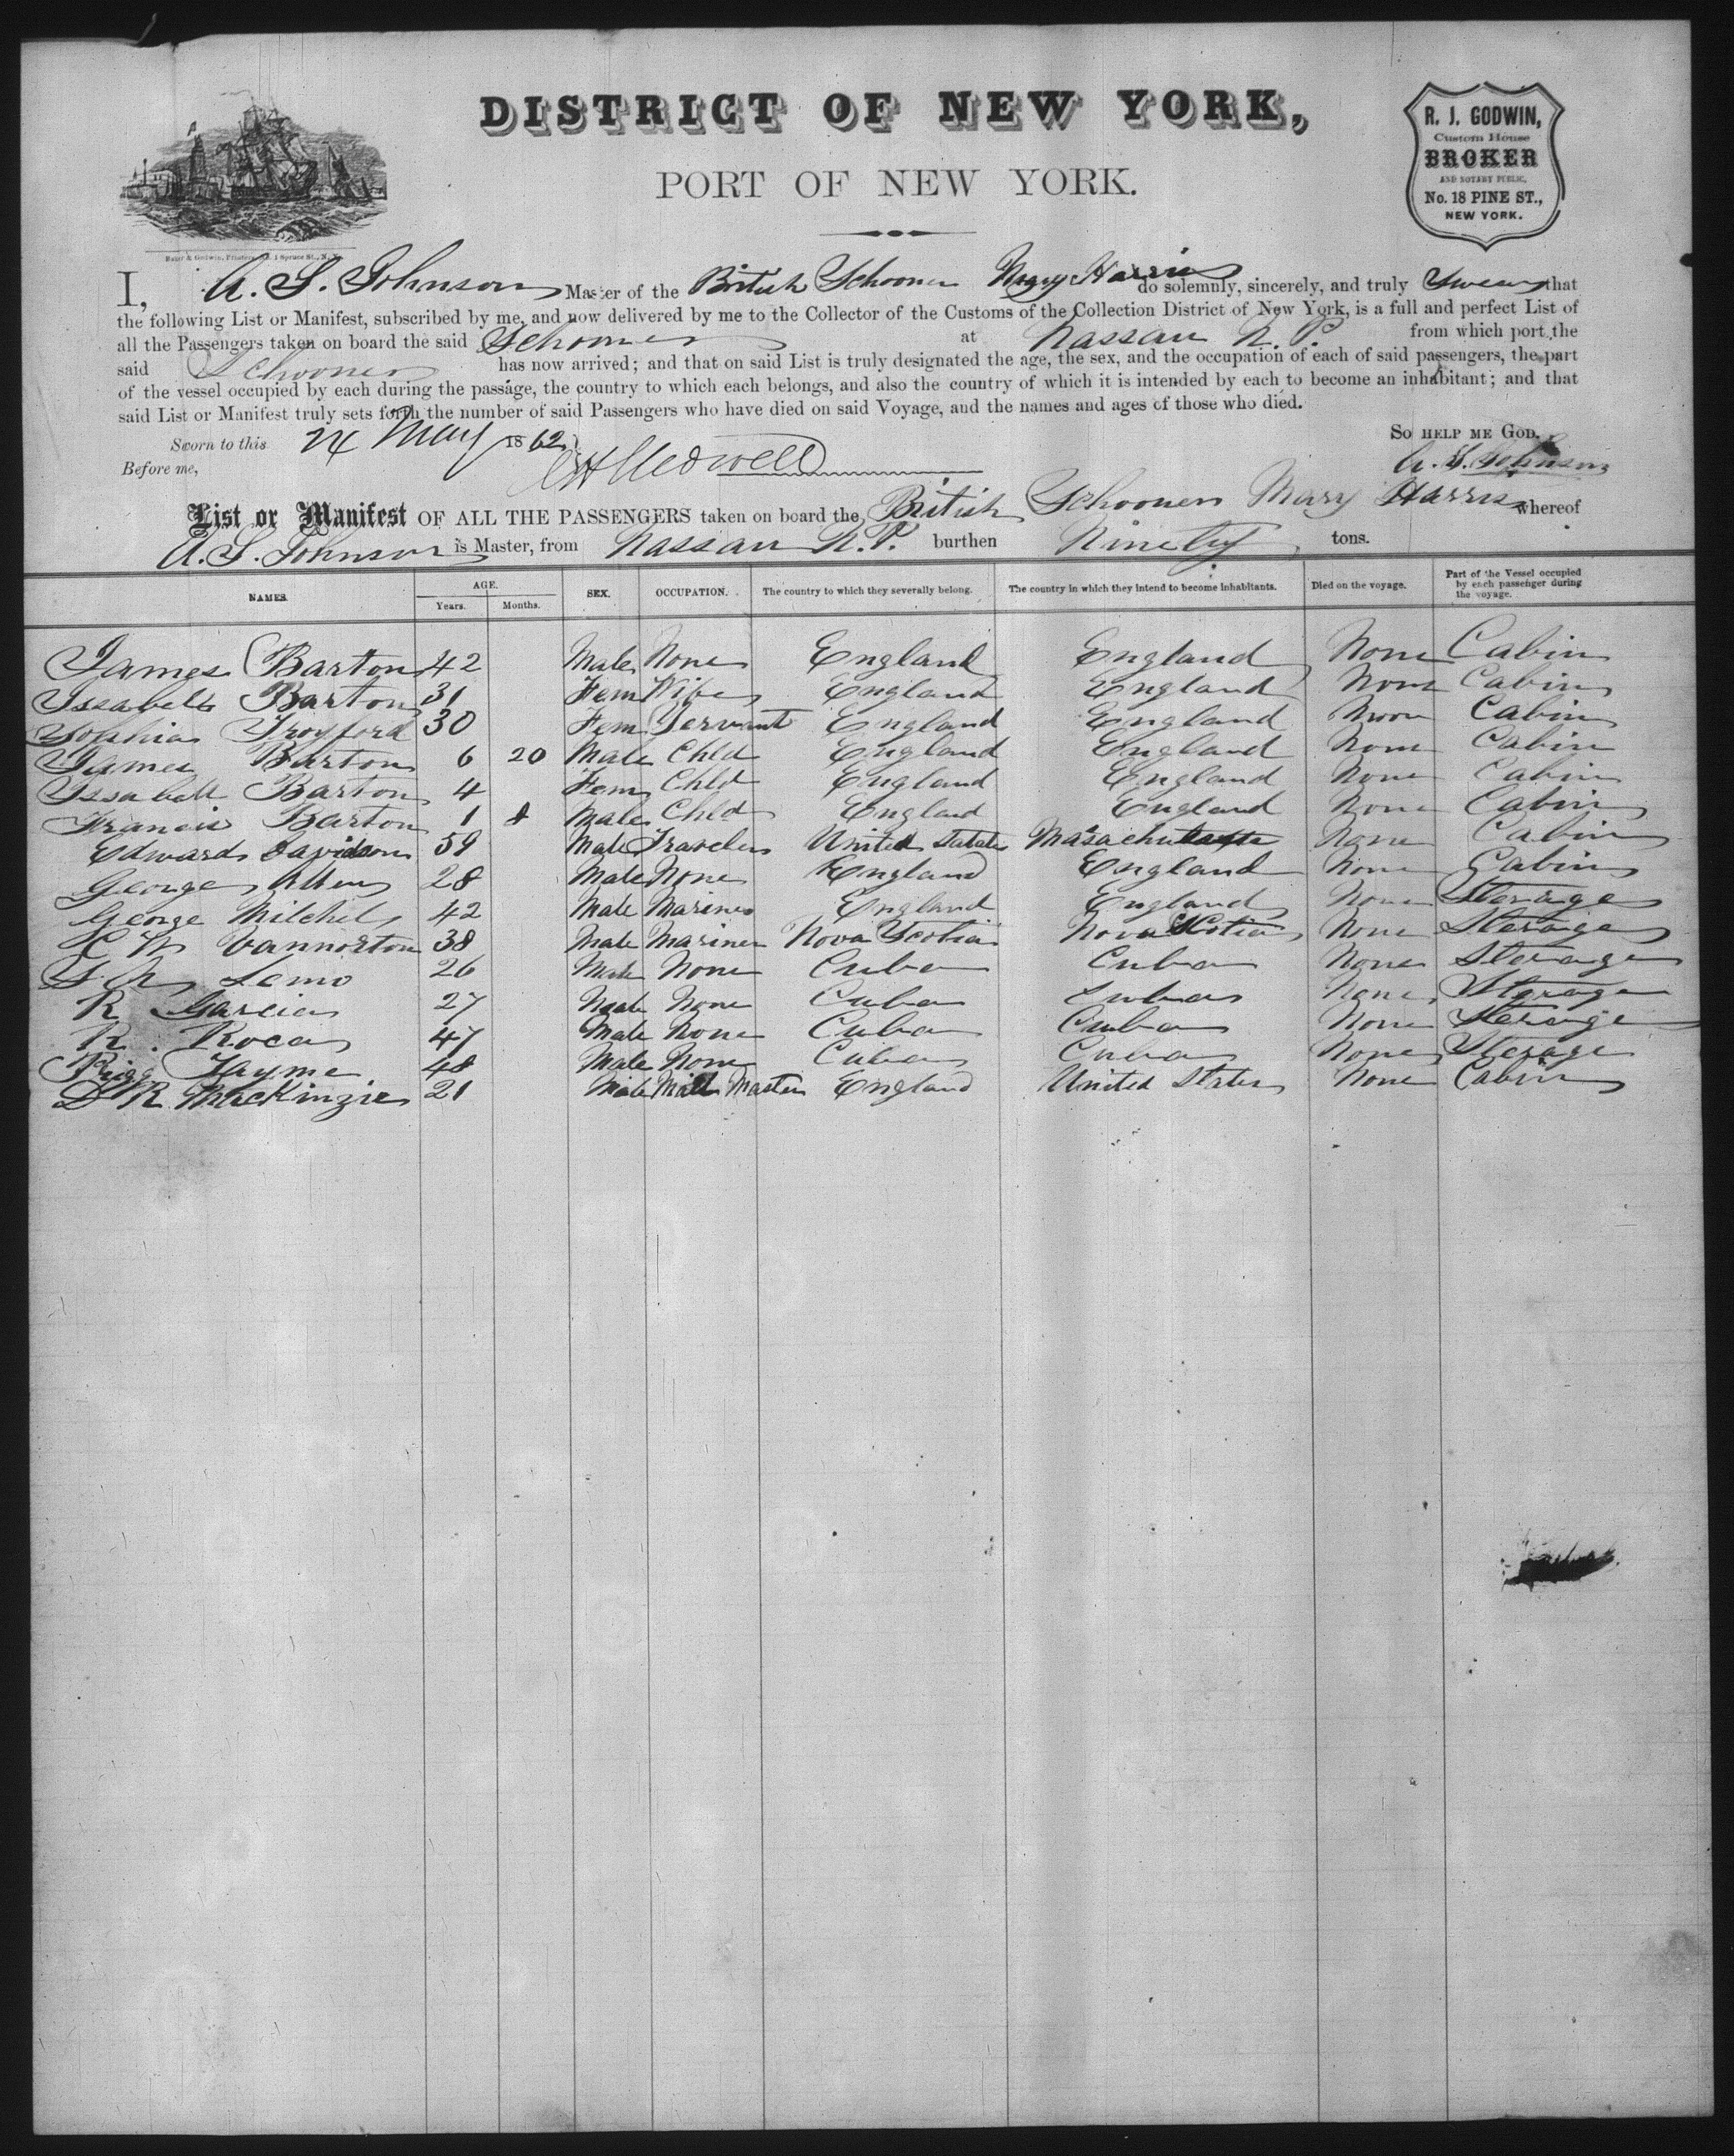 DISTRICT OF NEW YORK,
PORT OF NEW YORK.
R. J. GODWIN,
Custom House
BROKER
AND NOTARY PUBLIC,
No. 18 PINE ST.,
NEW YORK.
Baker & Godwin, Printers, No. 1 Spruce St., N. Y.
I, A. S. Johnson Master of the British Schooner Mary Harris do solemnly, sincerely, and truly Swear that
the following List or Manifest, subscribed by me, and now delivered by me to the Collector of the Customs of the Collection District of New York, is a full and perfect List of
all the Passengers taken on board the said Schooner at Nassau N. P. from which port the
said Schooner has now arrived; and that on said List is truly designated the age, the sex, and the occupation of each of said passengers, the part
of the vessel occupied by each during the passage, the country to which each belongs, and also the country of which it is intended by each to become an inhabitant; and that
said List or Manifest truly sets forth the number of said Passengers who have died on said Voyage, and the names and ages of those who died.
Sworn to this 24 May 1862 SO HELP ME GOD.
Before me, A. S. Johnson
List or Manifest OF ALL THE PASSENGERS taken on board the British Schooner Mary Harris whereof
A. S. Johnson is Master, from Nassau N. P. burthen Ninety tons.
NAMES. AGE. Years. Months. SEX. OCCUPATION. The country to which they severally belong. The country in which they intend to become inhabitants. Died on the voyage. Part of the Vessel occupied by each passenger during the voyage.
James Barton 42 Male None England England None Cabin
Issabell Barton 31 Fem Wife England England None Cabin
Sophia 30 Fem Servant England England None Cabin
James Barton 6 20 Male Chld England England None Cabin
Issabell Barton 4 Fem Chld England England None Cabin
Francis Barton 1 8 Male Chld England England None Cabin
Edward Davidson 59 Male Traveler United Statates None Cabin
George Allen 28 Male None England England None Cabin
George Mitchel 42 Male Mariner England England None Sterage
C W Vannorton 38 Male Mariner Nova Scotia Nova Scotia None Sterage
Lemo 26 Male None Cuba Cuba None Sterage
R Garcia 27 Male None Cuba Cuba None Sterage
R. Roca 47 Male None Cuba Cuba None Sterage
Hayme 48 Male None Cuba Cuba None Sterage
D R MacKinzie 21 Male Mill Master England United States None Cabin